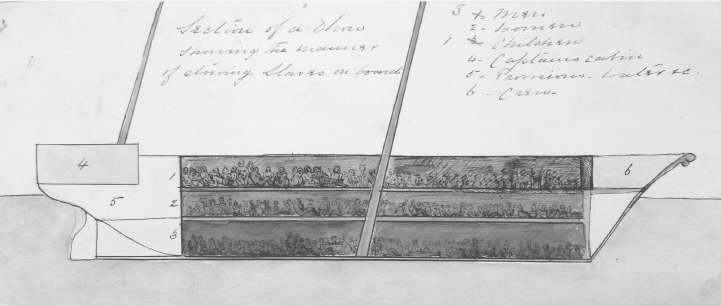 Section of a Dhow
showing the manner
of stowing Slaves on board
3 Men
2 - Women
1 Children
4 - Captains cabin
5 - Provisions. water &c.
6 - Crew.
4
1
6
5
2
3